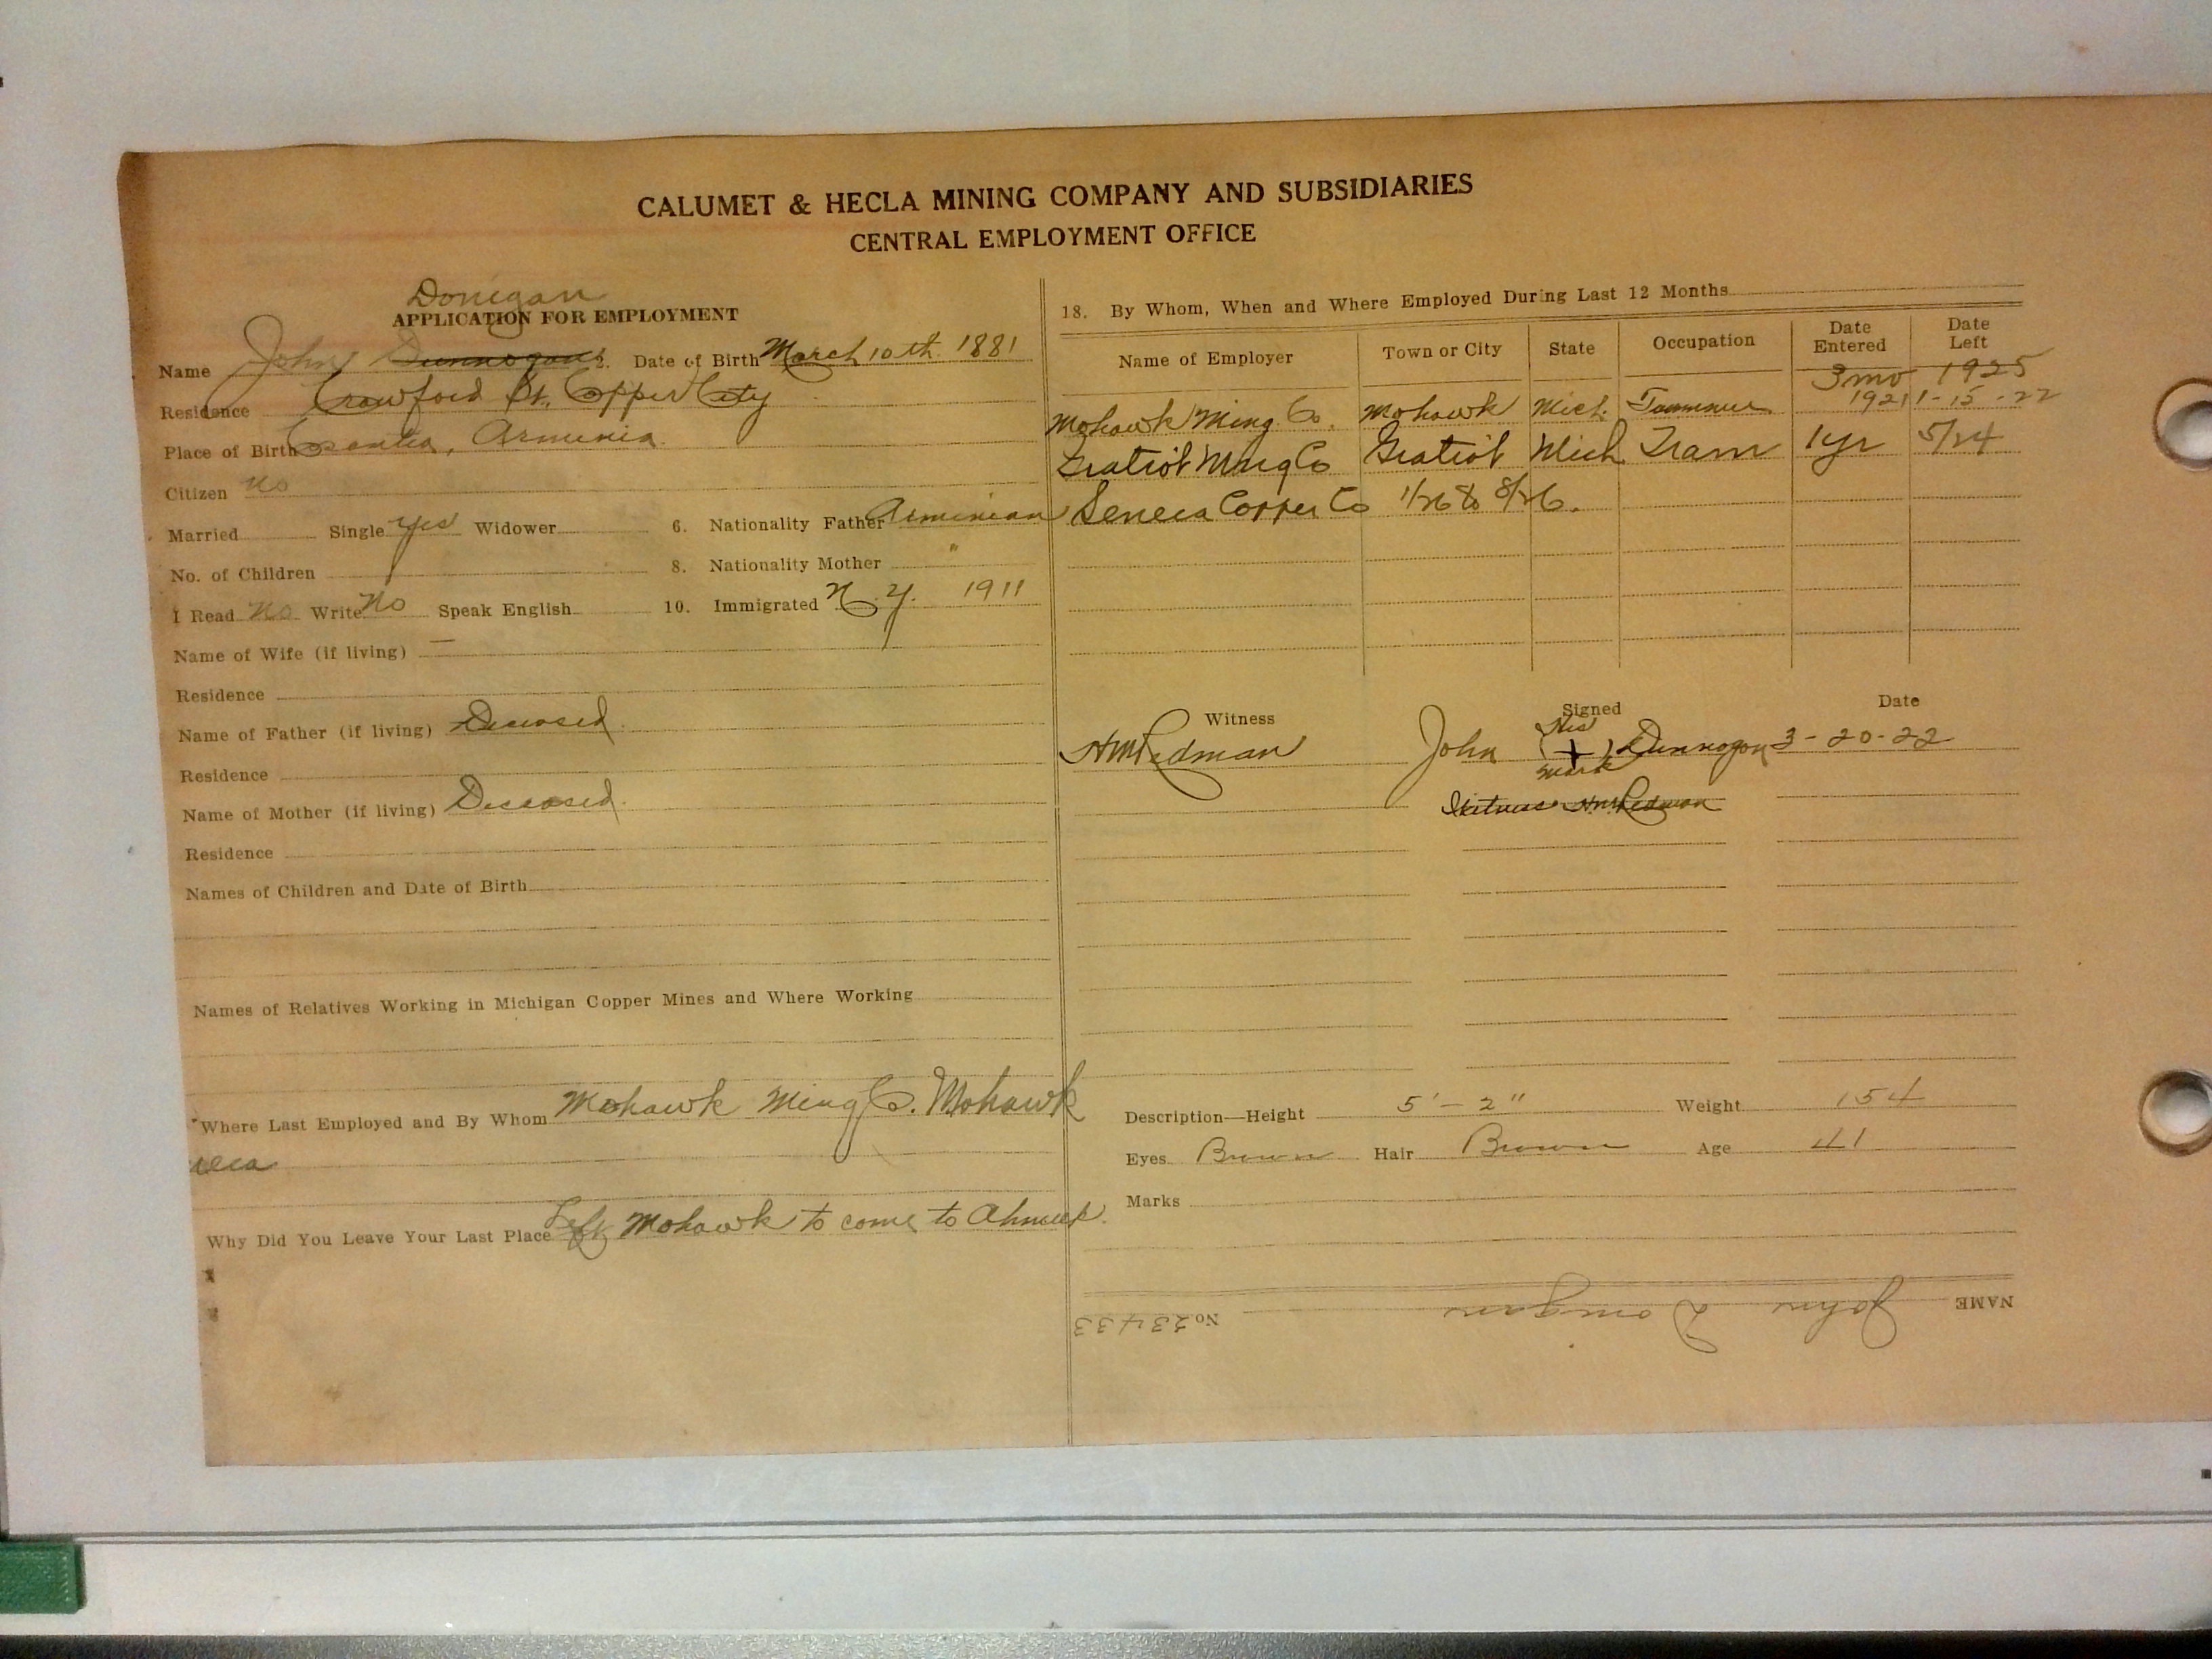 CALUMET & HECLA MINING COMPANY AND SUBSIDIARIES
CENTRAL EMPLOYMENT OFFICE
Donigan
APPLICATION FOR EMPLOYMENT
Name John Dunnogan 2. Date of Birth March 10th. 1881
Residence Crawford St., Copper City
Place of Birth Armenia
Citizen no
Married Single yes Widower 6. Nationality Father Arminian
No. of Children 8. Nationality Mother "
I Read No Write No Speak English 10. Immigrated N.Y. 1911
Name of Wife (if living) —
Residence
Name of Father (if living) Deceased
Residence
Name of Mother (if living) Deceased
Residence
Names of Children and Date of Birth
Names of Relatives Working in Michigan Copper Mines and Where Working
Where Last Employed and By Whom Mohawk Ming Co. Mohawk
Why Did You Leave Your Last Place Left Mohawk to come to Ahmeek.
18. By Whom, When and Where Employed During Last 12 Months
Name of Employer Town or City State Occupation Date Entered Date Left
3 mo 1925
Mohawk Ming. Co. Mohawk Mich. Trammer 1921 1-15-22
Gratiot Mng Co Gratiot Mich Tram 1 yr 5/24
Seneca Copper Co 1/26 to 8/26.
Witness Signed Date
HM Redman John (His + mark) Dunnogan 3-20-22
Witness HM Redman
Description—Height 5'-2" Weight 154
Eyes Brown Hair Brown Age 41
Marks
NAME John Donigan No 23433